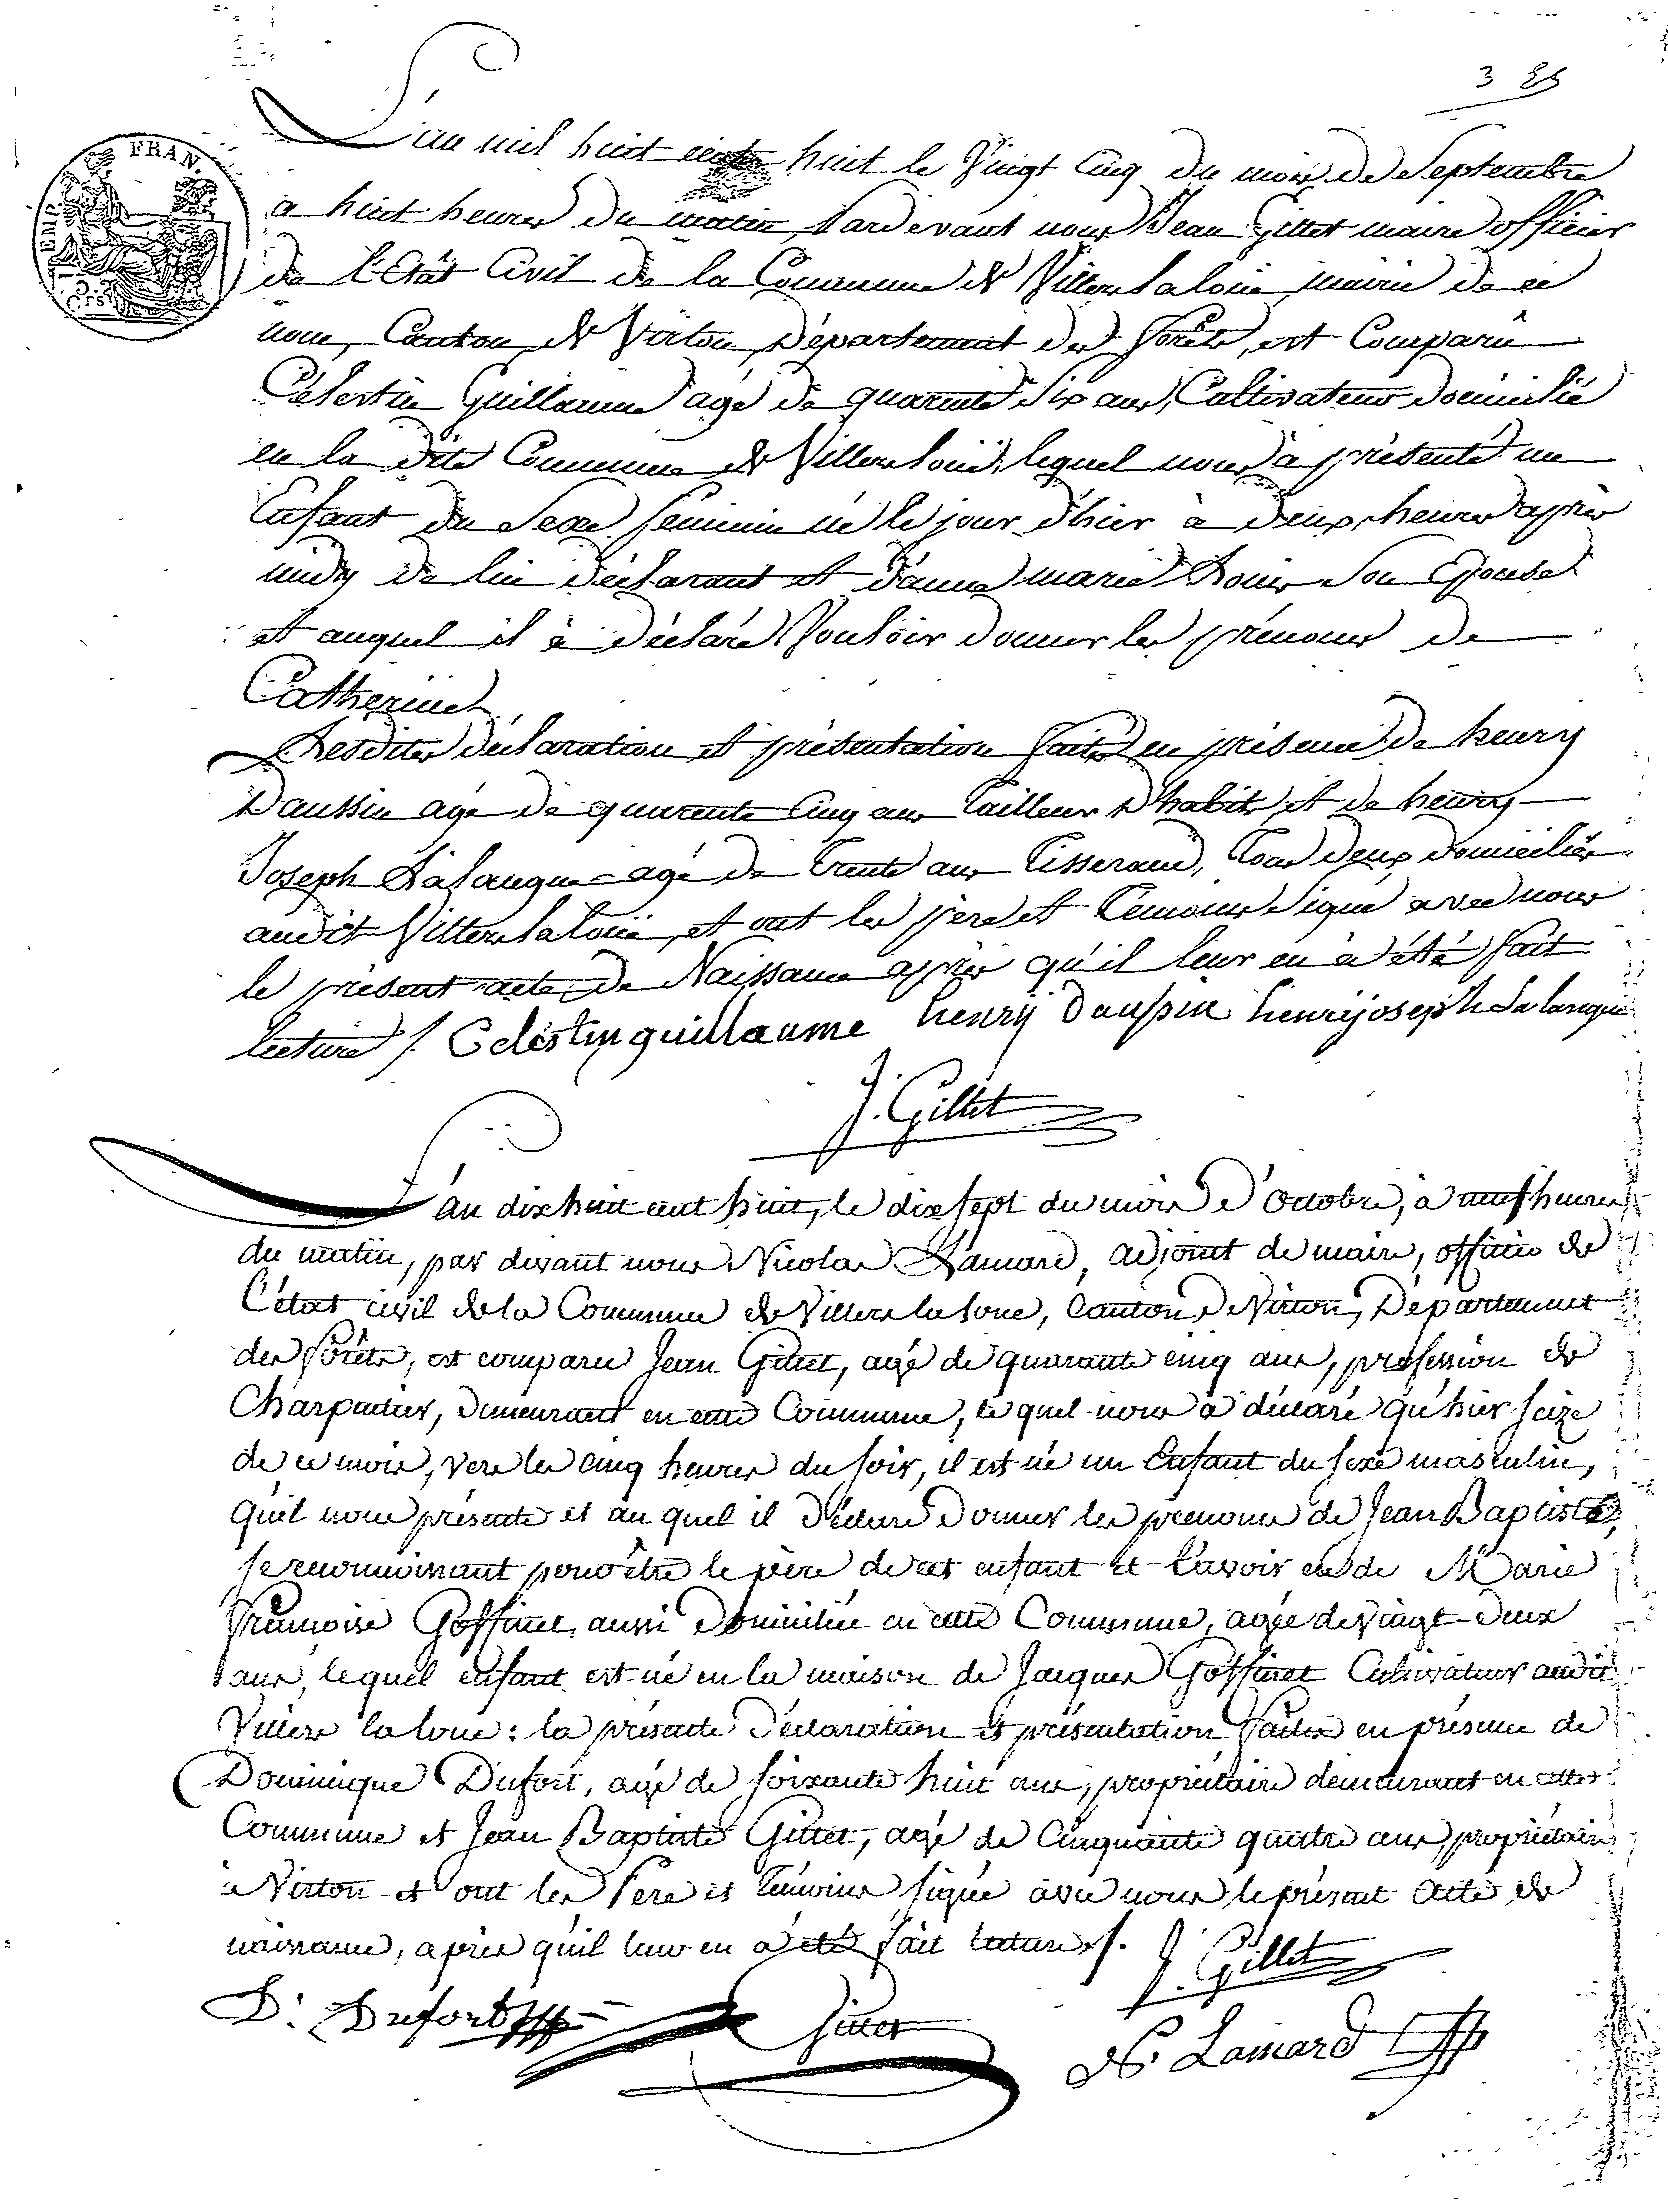 3 85
EMP. FRAN.
L'an mil huit cent huit le Vingt Cinq du mois de Septembre
a huit heures du matin, Pardevant nous Jean Gillet maire officier
de l'Etât Civil de la Commune de Villers la loüe mairie de ce
nom, Canton de Virton, Département des forêts, est Comparû
Célestin Guillaume agé de quarante Six ans, Cultivateur domicilié
en la dite Commune de Villersloüe, lequel nous à présenté un
Enfant du Sexe féminin né le jour d'hier à deux heures après
midy de lui déclarant et d'anne marie son Epouse
et auquel il à déclaré Vouloir donner les prénoms de
Catherine
Lesdites déclaration et présentation faites en présence de henry
Daussin agé de quarente Cinq ans Tailleur D'habits, et de henry
Joseph Lalangue agé de Trente ans Tisserand, Tous deux domiciliés
audit Villers la loüe, et ont les père et Témoins Signé avec nous
le présent acte de Naissance après qu'il leur en à été fait
lecture /. Celestin guillaume henry Daussin henrij joseph Lalangue
J. Gillet
L'an dix huit cent huit, le dix sept du mois d'octobre, à neuf heures
du matin, par devant nous Nicolas Lamard, adjoint de maire, officier de
L'état civil de la Commune de Villers la loue, Canton de Virton, Département
des forêts, est comparu Jean Gillet, agé de quarante cinq ans, profession de
Charpentier, demeurant en cette Commune, lequel nous a déclaré qu'hier seize
de ce mois, vers les cinq heures du soir, il est né un Enfant du sexe masculin,
qu'il nous présente et au quel il déclare donner les prénoms de Jean Baptiste,
se reconnoissant pour être le père de cet enfant et l'avoir eu de Marie
françoise Goffinet, aussi domiciliée en cette Commune, agée de vingt-deux
ans, lequel enfant est né en la maison de Jacques Goffinet Cultivateur audit
Villers la loue : la présente déclaration et présentation faites en présence de
Dominique Dufort, agé de soixante huit ans, propriétaire demeurant en cette
Commune et Jean Baptiste Gillet, agé de Cinquante quatre ans, propriétaire
à Virton et ont les Père et témoins signé avec nous le présent acte de
naissance, après qu'il leur en a été fait lecture /. J. Gillet
D. Dufort Gillet N. Lamard